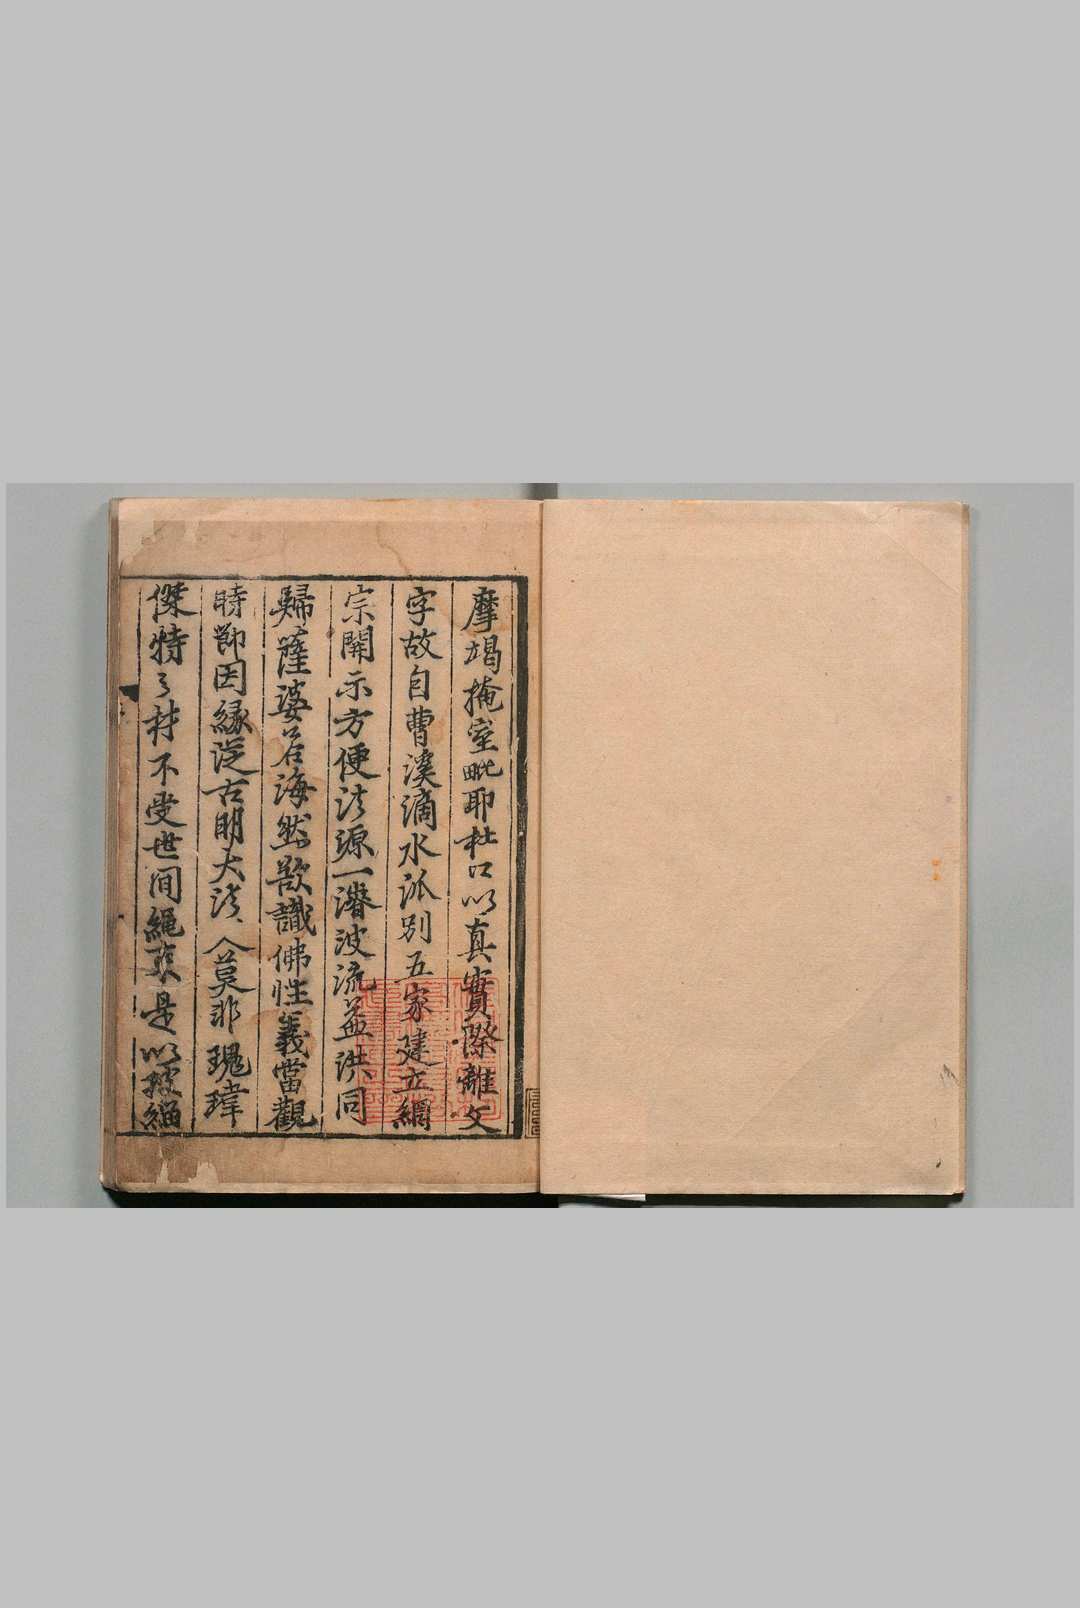 摩竭掩室毗耶杜口以真實際離文
字故自曹溪滴水派別五家建立綱
宗開示方便法源一濬波流益洪同
歸薩婆若海然欲識佛性義當觀
時節因緣從古明大法人莫非瑰瑋
傑特之材不受世間繩束是以披緇